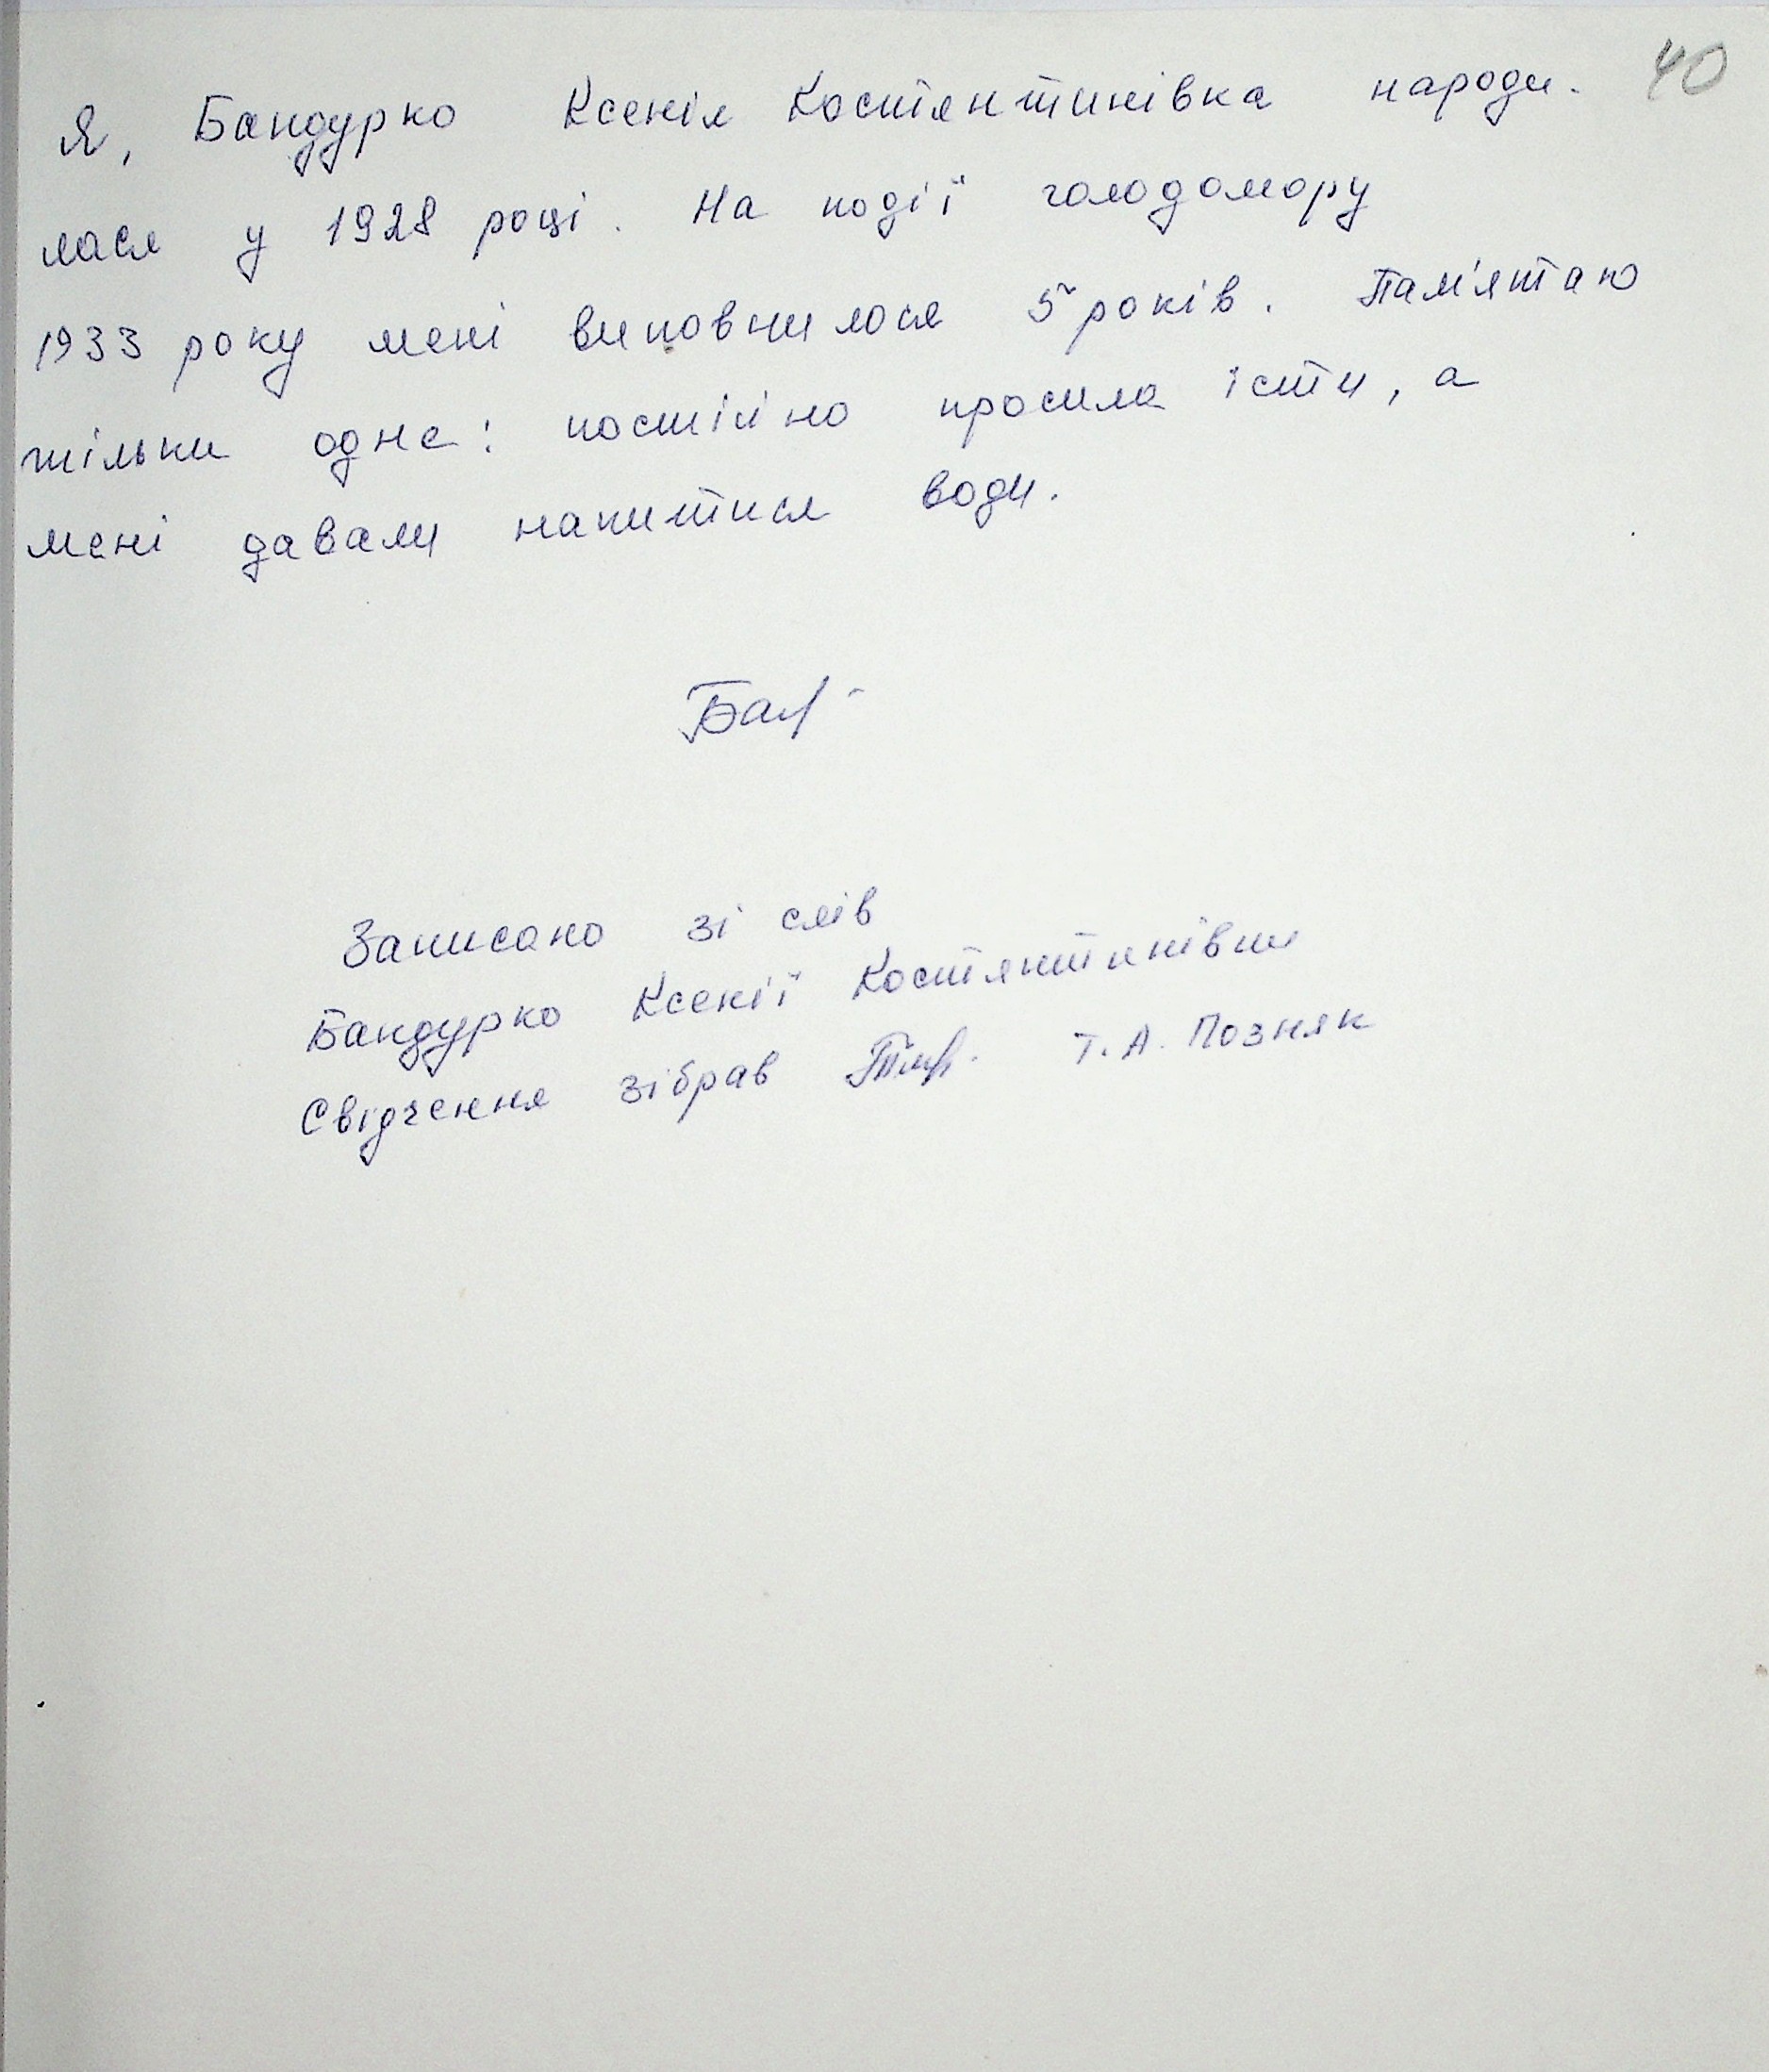 40
Я, Бандурко Ксенія Костянтинівна народи-
лася у 1928 році. На події голодомору
1933 року мені виповнилося 5 років. Пам'ятаю
тільки одне: постійно просила їсти, а
мені давали напитися води.
Записано зі слів
Бандурко Ксенії Костянтинівни
Свідчення зібрав Т. А. Позняк